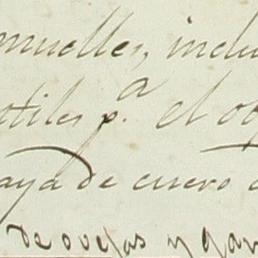 muelles, inclu
tiles p.ª el o
aya de cuero
de ovejas y gan